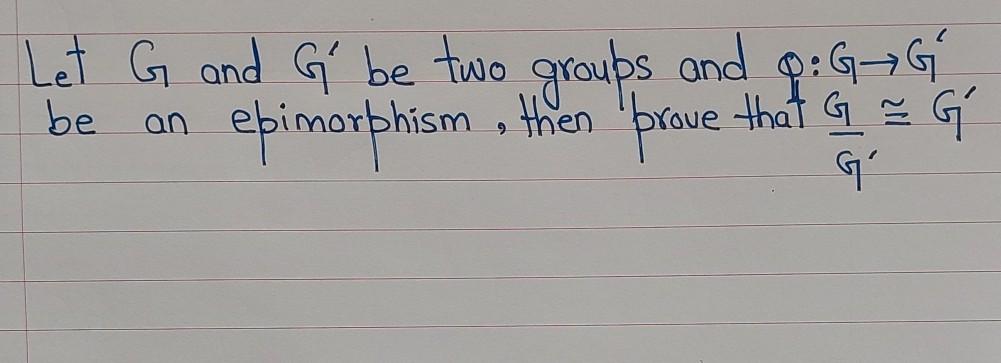 Let G and G' be two groups and φ: G→G'
be an epimorphism, then prove that G/G' ≅ G'